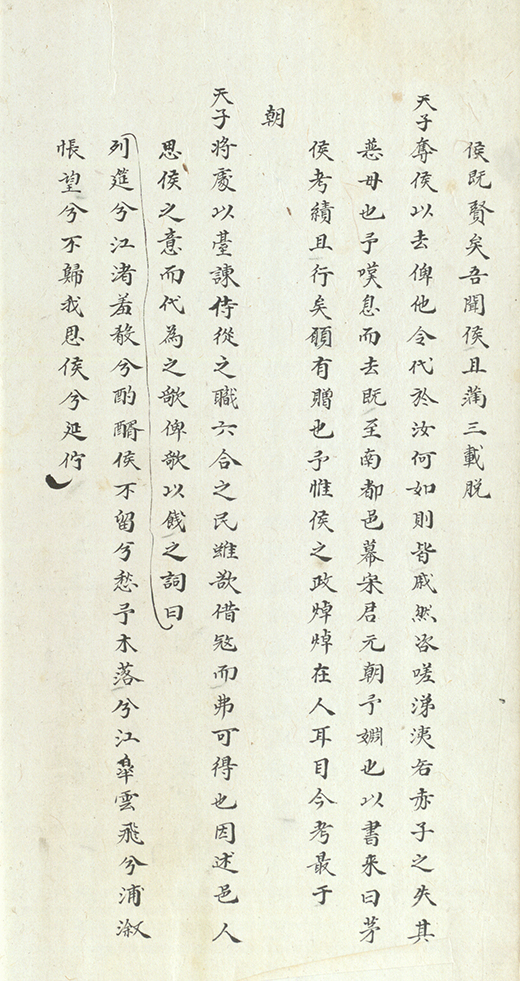 侯既賢矣吾聞侯且蒲三載脱
天子奪侯以去俾他令代於汝何如則皆戚然咨嗟涕洟若赤子之失其
慈母也予嘆息而去既至南都邑幕宋君元朝予婣也以書来曰茅
侯考績且行矣願有贈也予惟侯之政焯焯在人耳目今考最于
朝
天子將處以臺諫侍從之職六合之民雖欲借冦而弗可得也因述邑人
思侯之意而代為之歌俾歌以餞之詞曰
列筵兮江渚羞殽兮酌醑侯不留兮愁予木落兮江皐雲飛兮浦溆
悵望兮不歸我思侯兮延佇